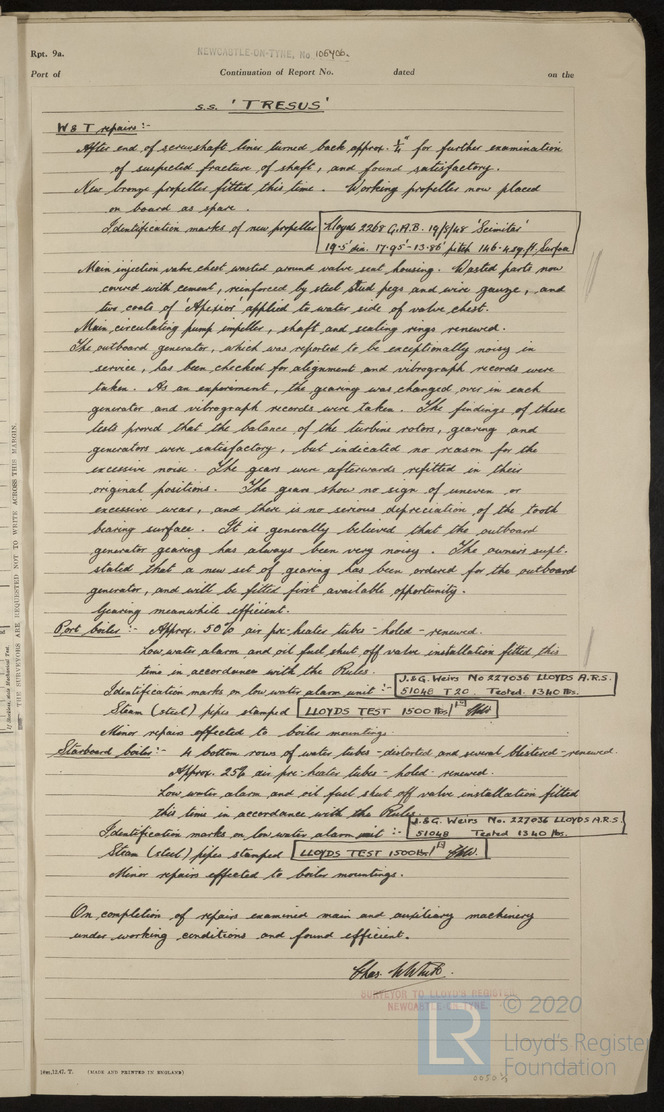 Rpt. 9a.
NEWCASTLE-ON-TYNE, No 106406.
Port of Continuation of Report No. dated on the
s.s. 'TRESUS'
W & T repairs:-
After end of screwshaft liner turned back approx. ¼" for further examination
of suspected fracture of shaft, and found satisfactory.
New bronze propeller fitted this time. Working propeller now placed
on board as spare.
Identification marks of new propeller Lloyds 2268 G.A.B. 19/5/48 'Scimitar'
19·5' dia. 17·95'-13·86' pitch 146·4 sq. ft. Surface
Main injection valve chest wasted around valve seat housing. Wasted parts now
covered with cement, reinforced by steel stud pegs and wire gauze, and
two coats of 'Apexior' applied to water side of valve chest.
Main circulating pump impeller, shaft and sealing rings renewed.
The outboard generator, which was reported to be exceptionally noisy in
service, has been checked for alignment and vibrograph records were
taken. As an experiment, the gearing was changed over in each
generator and vibrograph records were taken. The findings of these
tests proved that the balance of the turbine rotors, gearing and
generators were satisfactory, but indicated no reason for the
excessive noise. The gears were afterwards refitted in their
original positions. The gears show no sign of uneven or
excessive wear, and there is no serious depreciation of the tooth
bearing surface. It is generally believed that the outboard
generator gearing has always been very noisy. The owners supt.
stated that a new set of gearing has been ordered for the outboard
generator, and will be fitted first available opportunity.
Gearing meanwhile efficient.
Port boiler:- Approx. 50% air pre-heater tubes - holed - renewed.
Low water alarm and oil fuel shut off valve installation fitted this
time in accordance with the Rules.
Identification marks on low water alarm unit:- J.&G. Weirs No 227036 LLOYDS A.R.S.
51048 T20. Tested 1340 lbs.
Steam (steel) pipes stamped LLOYDS TEST 1500 lbs.
Minor repairs effected to boiler mountings.
Starboard boiler:- 4 bottom rows of water tubes - distorted and several blistered - renewed.
Approx. 25% air pre-heater tubes - holed - renewed.
Low water alarm and oil fuel shut off valve installation fitted
this time in accordance with the Rules.
Identification marks on low water alarm unit:- J.&G. Weirs No. 227036 LLOYDS A.R.S.
51048 Tested 1340 lbs.
Steam (steel) pipes stamped LLOYDS TEST 1500 lbs.
Minor repairs effected to boiler mountings.
On completion of repairs examined main and auxiliary machinery
under working conditions and found efficient.
Chas. W White.
SURVEYOR TO LLOYD'S REGISTER
NEWCASTLE-ON-TYNE.
LR © 2020
Lloyd's Register
Foundation
10m,12,47. T. (MADE AND PRINTED IN ENGLAND)
THE SURVEYORS ARE REQUESTED NOT TO WRITE ACROSS THIS MARGIN.